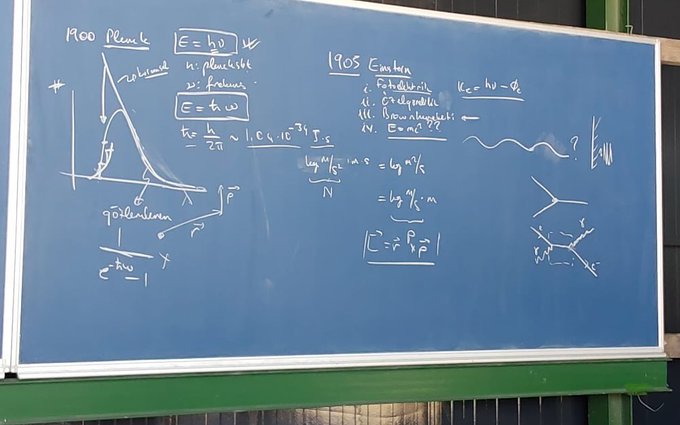 1900 Planck
E = hν
h: planck sbt
ν: frekans
E = ħ ω
ħ = h/2π ~ 1,04·10⁻³⁴ J·s
#
λ
gözlemlenen
1
e^-ħω - 1
r⃗
p⃗
1905 Einstein
i. Fotoelektrik
ii. Özel görelilik
iii. Brown hareketi
iv. E = mc² ??
K_e = hν - Φ_e
?
kg m/s² · m · s = kg m²/s
N
= kg m/s · m
P
|L⃗ = r⃗ × p⃗|
e⁻
γ
γ
e⁻